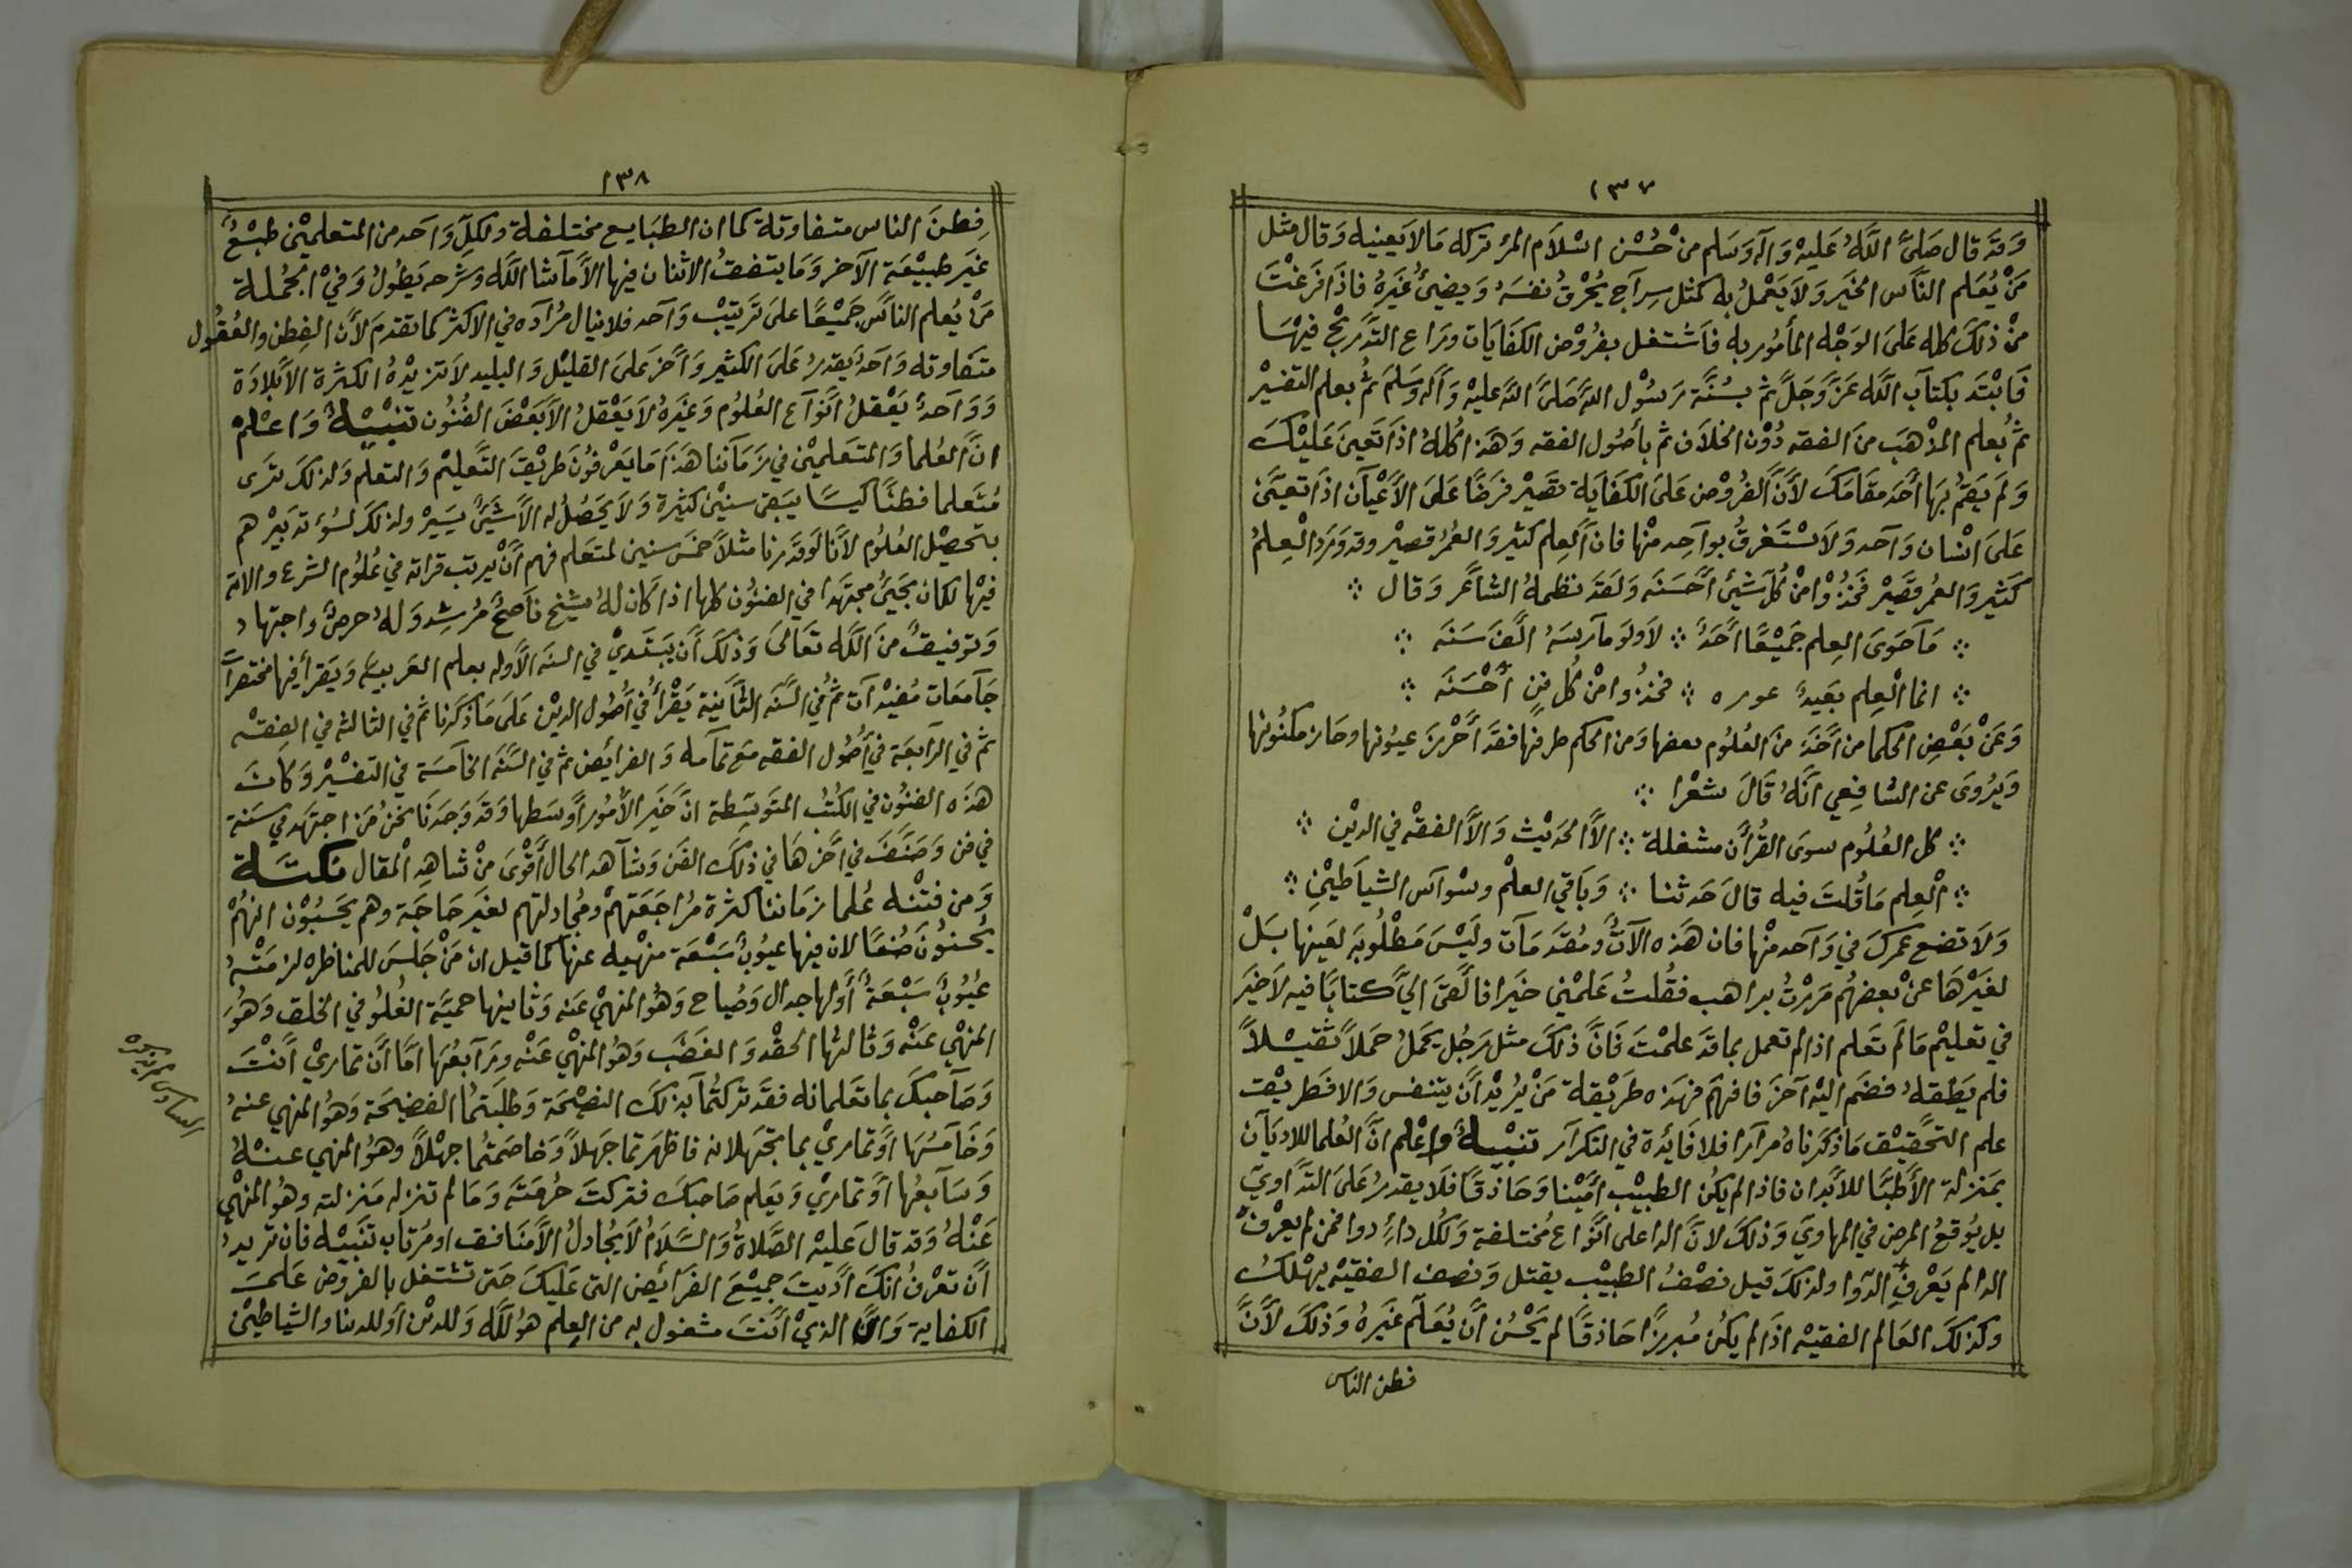 ١٣٧
وَقَد قال صَلىَّ اللَّهُ عَليهْ وَآله وَسَلم منْ حُسْن اسْلاَم المرْ تركه مَالاَيعينيه وَقال مثل
مَنْ يُعَلم النَّاس الخَير وَلاَيَعْملُ به كمثل سِرآج يُحْرقُ نفسَهُ وَيضيئُ غَيَرهُ فاذَافَرغْتَ
منْ ذلكَ كله عَلىَ الوَجْه المأمُور به فاَشْتغل بفرُوْض الكفَايَات وَرَاع التدَّرِيْج فيهْا
فَابْتَد بكتآب اللَّه عَزَّوَجَلَّ ثم بسُنَّة رَسُوْل اللهَّ صَلىَّ اللهَّ عليهْ وَآله وَسَلمَ ثمُ بعلم التفسيْر
ثمُ بُعلم المذْهَب منَ الفقه دُوْن الخلاَف ثم بأصُول الفقه وَهَذا كُلهُ اذاتَعينَ عَليْكَ
وَلَم يَقمُ بهَا أحَدمقَامَكَ لأنَّ الفُروْض عَلىَ الكفَايَة تصَيْر فرَضًا عَلىَ الأعْيآن اذاَتعيَّنَ
عَلىَ انْسَان وَآحد وَلاَ سْتَغرقُ بوآحِد منْها فان اَلعِلم كثيْر وَالعمُر قصيْر وقدوَردالْعِلمُ
كَثير وَالعمُر قَصَيْر فَخذُوْا منْ كُلّ شَيئ أحْسَنَه وَلقَد نظمهُ الشاَعَر وَقال
مَآحَوىَ العِلم جَميْعًا أحَدٌ لاَولَو مآرسَهُ الْفَ سَنَه
انما الْعِلم بَعيدٌ عوره فخذُوا منْ كُل فنٍ أحْسَنَه
وَعَنْ بَعْضِ الحكما من أخَذَ منَ العُلوُم بعضها وَمن الحكم طرفها فقَد أحْرزَ عيوُنها وحَاز مكنُونها
وَيَرُوىَ عن الشافِعي انَّهُ قَالَ شعْرا
كل العُلُوم سوىَ القُرأن مشغلة الاَّ الحَديْث وَالاَّ الفقه في الديْن
الْعِلم مَاقُلتَ فيه قالَ حَدثنا وَبَاقي العلمْ وسْوآس الشيَاَطيْنِ
وَلاَ تضع عمركَ في وَآحد منْها فان هَذه الآتٌ ومُقدَمَآت وليْسَ مَطْلُوبَة لعَينها بَلْ
لغيْرهَا عنْ بعضهُم مَررْتُ براهب فقُلتُ عَلمْني خَيرا فالْقىَ اليَّ كتابَا فيه لاَخيَر
في تعليْم مَالَم تعَلم اذالم تعمل بماقدَ علمْتَ فَانَّ ذلكَ مثل رَجُل يحَملُ حمَلاً ثقيْلاً
فلم يَطقهُ فضَم اليْه آخرَ فافهَم فهَذه طَريْقة مَنْ يُريْد أنَ يتنفس وَالافطريْقت
علم التحَّقيْق مَاذكَرناهُ مرآرا فلا فَايدَة في التكرآر تنبْيهٌ وإعْلم انَّ العُلما للاديآن
بمَنزلة الأطبَّا للأبدان فاذالم يكُن الطبيْب امَيْنا وَحَاذقًا فَلاَ يقدرُ عَلىَ التَّدآويَ
بل يوُقعُ المرض في المهاويَ وَذلكَ لانَّ الدا على انْواع مُختلفة وَلكُل دآءٍ دوا فمن لم يعرفْ
الدا لم يَعْرفِ الدّوا ولذلكَ قيل نصْفُ الطبيْب يقتل وَنصف الفقيْه يهْلكُ
وكذلكَ العَالم الفقيْه اذَالم يكُن مُبرزًا حَاذقًا لم يَحْسُن أنَّ يُعَلَم غَيَرهُ وَذلكَ لأنَّ
فطن الناس
١٣٨
فِطنَ الناس متفاوتة كما ان الطبَايع مختلفلة ولكِلّ وَاحَد من المتعلميْن طبْعٌ
غيَر طبيْعَة الآخر وَمَا يتفقُ الاثنان فيها الاَّ مآشا اللَّه وَشرحه يَطوُلُ وَفيْ الجمُلة
مَنْ يُعلم الناَّس جَميْعًا علىَ تَرتيْب وَآحد فلا ينال مُرآده في الاكثر كما تقدمَ لأنَّ الفِطن والعُقوُل
متفاوته وَاحَدُ يَقدرُ عَلىَ الكثيْر وَآخر عَلىَ القليْل وَالبليد لاَتزيْدهُ الكثرة الاَّ بلادَة
وَوَآحدٌ يَعْقلُ انْوآع العُلوُم وَغيَرهُ لاَيَعْقلُ الاَّ بَعْضَ الفُنُون تنبْيْهٌ وَاعْلمْ
انَّ العُلما وَالمتَعَلميْن في زَمآننا هَذَا مَا يَعْرفوُن طريْقَ التَّعليْم وَالتعلم وَلذلكَ ترَى
مُتَعلما فطنًا كيسًا يبَقى سنيْنَ كثيْرة وَلاَ يَحصُلُ له الاَّ شَيئٌ يسَيْر ولذلكَ لسُوُء تدبيْر هم
بتحصْيْل العُلوُم لأنَّا لَوقدَّرنا مثلاً خمسَ سنين لمتعَلم فهم أنَّ يرتب قراته في عُلوُم الشرع والاته
فيْها لكان يجَيئُ مجتهَدا في الفنُون كلها اذاكان لهُ شيْخ نَاصحٌ مُرشِد وَلهُ حرصٌ واجتهاد
وَتوفيقٌ منَ اللَّه تعَالىَ وَذلكَ أنَ يبَتَديْ في السنه الأوله بعلم العَربيهَ وَيَقرأ فيها مختصَرآت
جَآمعَات مُفيْدآت ثم في السَّنَه الثَّآنية يَقْرأُ في أصُول الديْن عَلىَ مَاذكَرنا ثم في الثالثه في الفِقْه
ثم في الرآبعَة في أصُول الفقه مَع تمآمه وَالفرائض ثم في السَّنَه الخاَمسَة في التفسْيْر وَكانَ
هذَه الفنُون في الكُتُب المتوَسِطة انَّ خَير الأمُور أوَسَطها وَقَد وَجدَنَا نحَنُ مَن اجتهَد في سَنة
في فن وَصَنَّفَ في آخْرهَا في ذلكَ الفَن وَشآهد الحال أقْوىَ منْ شاهِد المْقال نكتَة
وَمن فتنْه عُلما زمَاننا كثرة مُراجَعَتهمْ ومُجادلتهم لغيَر حَاجَة وهم يحَسبُوْن انهُمْ
يُحسنوُنَ صُنعًا لان فيها عيوُبٌ سَبْعَة منهْيه عنها كما قيل ان مَنْ جَلسَ للمناظره لزمَتْهُ
عُيُوبٌ سَبْعَةٌ أولها جدال وَصُياح وَهُو المنهيْ عَنه وَثانيها حميَّة العُلوُ في الخلق وَهُو
المنهْي عَنْه وَثالثهُا الحقْد وَالغضَب وَهُو المنهْي عَنْه وَرآبعُهَا أمَّا أنَّ تماريْ أنْتَ
وَصَآحبكَ بما تعَلمانه فقَد تركتُمآ بذلكَ النصيْحَة وَطلبَتمُا الفضيحَة وَهُو المنهي عنهُ
وَخَآمسُهَا أوَ تماريْ بما تجَهلانه فاظهَر تما جَهلاً وَخاصَمتُما جهْلاً وهوُ المنهي عنْهُ
وَسَآبعُها أوَ تماريْ وَيَعلم صَاحبكَ فتركتَ حُرمَتَه وَمَا لم تنزله مَنزلته وهوُ المنهْي
عَنْهُ وَقد قالَ عَليْه الصَّلاةُ وَالسَّلاَمُ لاَيجُادلُ الاَّ مُنَافق اومُرْتاب تنبَيْه فان تريد
أنَ تعْرفُ انكَ أدَّيتَ جميْعَ الفرَائض التى عَليكَ حَتىَ تشْتغل بالفروض عَلىَ
الكفاية وَانَّ الذيْ أنْتَ مشغول به من العِلم هوُ للَّه وَللديْن أو للدينا والشياطيْن